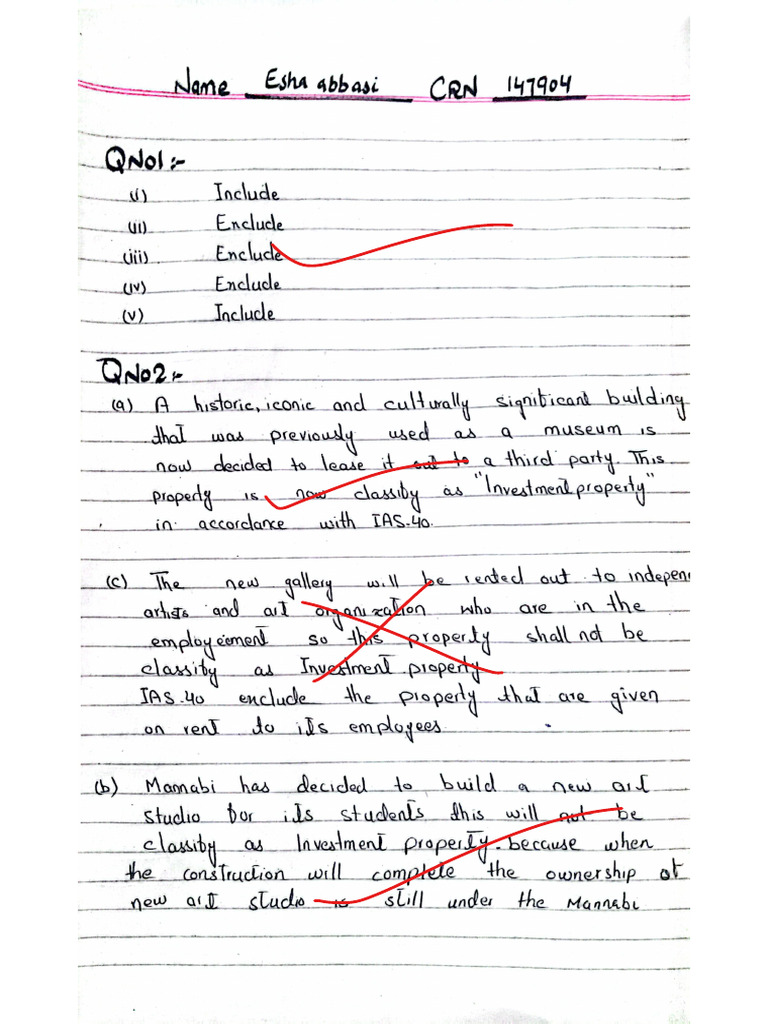 Name Esha abbasi CRN 147904
QNo1:-
(i) Include
(ii) Exclude
(iii) Exclude
(iv) Exclude
(v) Include
QNo2:-
(a) A historic, iconic and culturally significant building
that was previously used as a museum is
now decided to lease it out to a third party. This
property is now classify as "Investment property"
in accordance with IAS.40.
(c) The new gallery will be rented out to indepen
artists and art organization who are in the
employeement so this property shall not be
classify as Investment property
IAS.40 exclude the property that are given
on rent to its employees
(b) Mannabi has decided to build a new art
studio for its students this will not be
classify as Investment property. because when
the construction will complete the ownership of
new art studio is still under the Mannabi